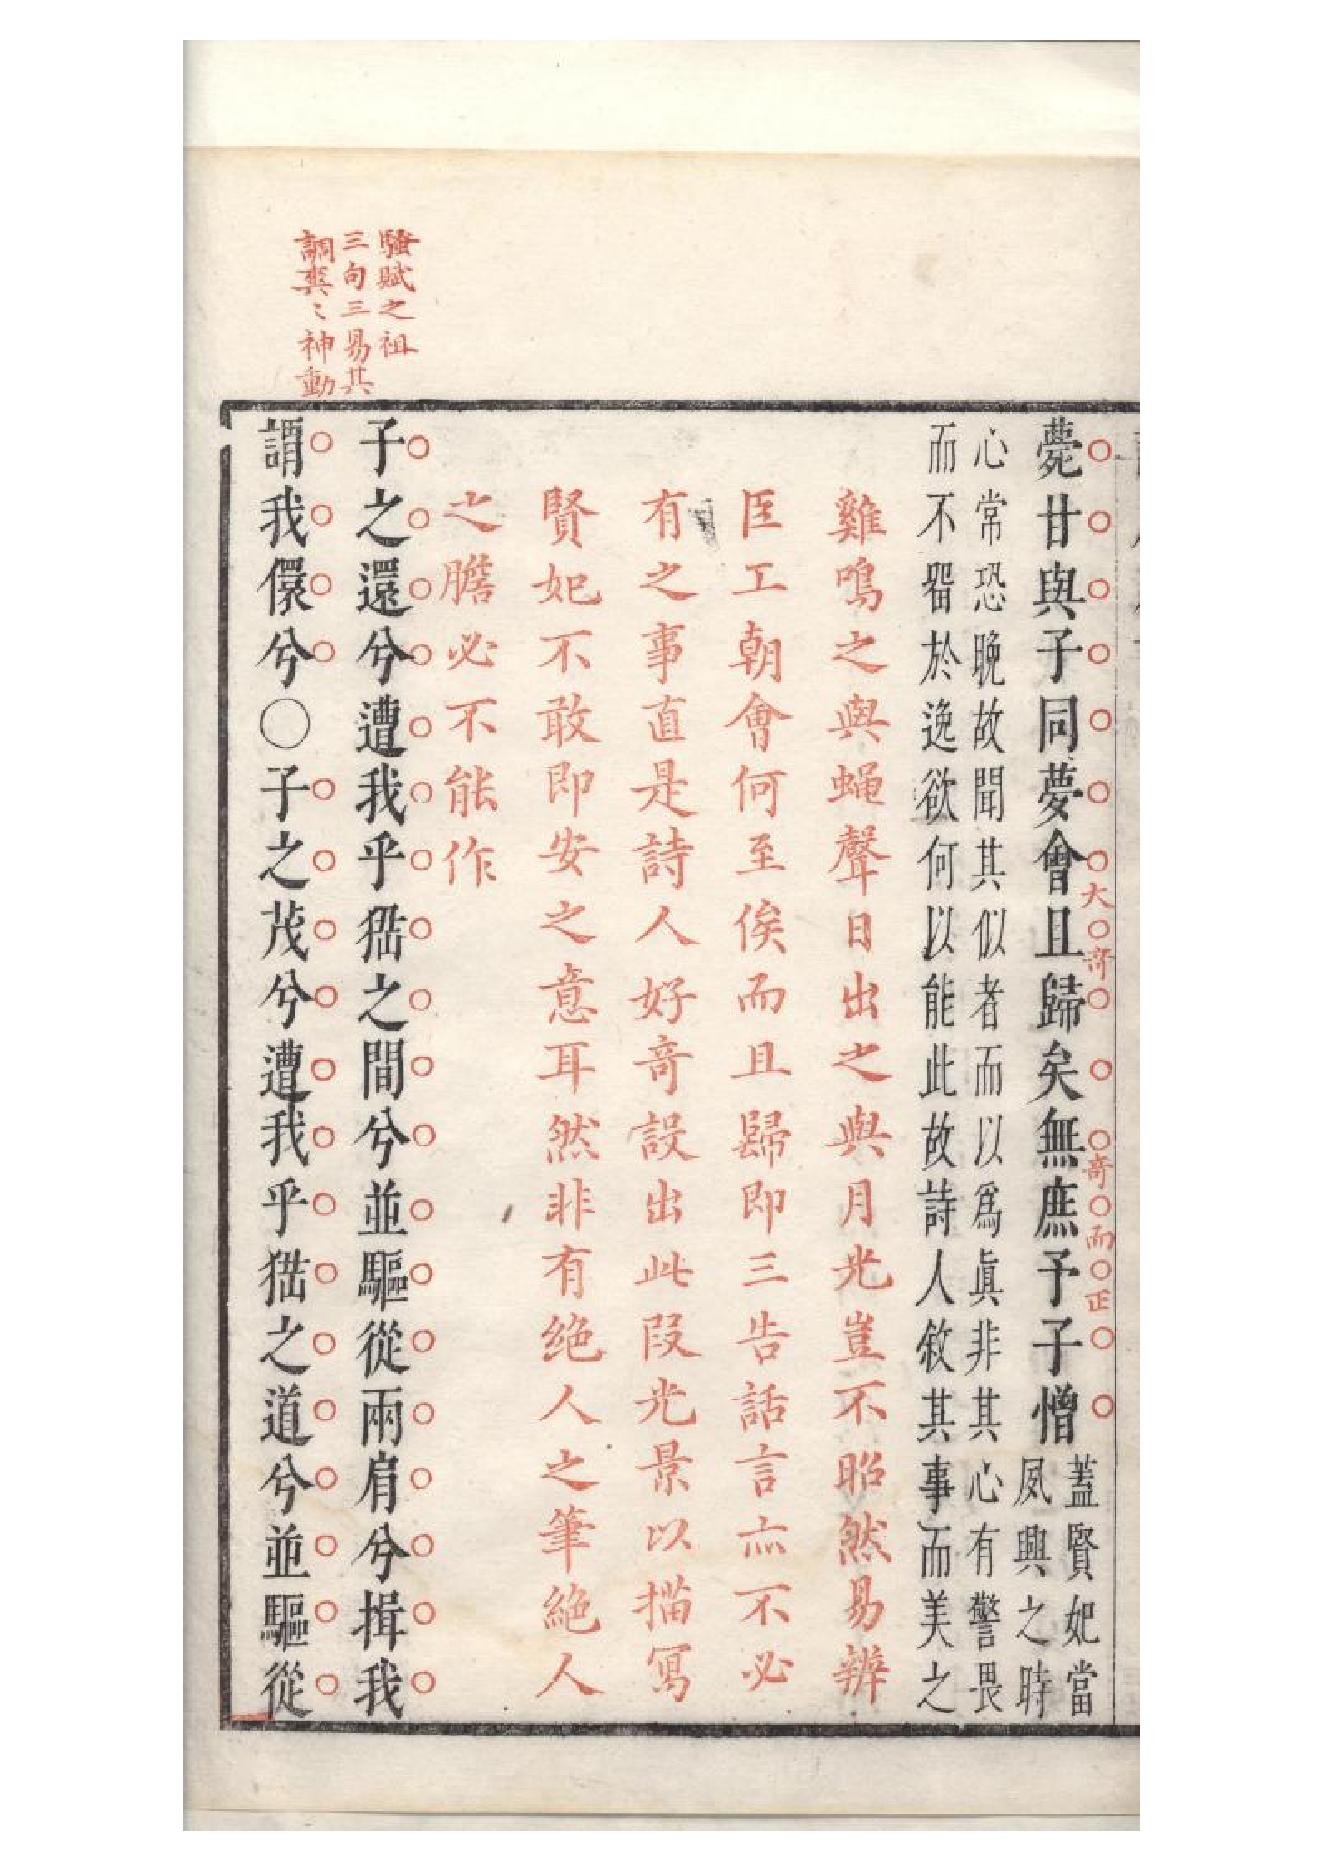 薨甘與子同夢會且歸矣無庶予子憎
大奇
奇而正
蓋賢妃當
夙興之時
心常恐晚故聞其似者而以爲眞非其心有警畏
而不畱於逸欲何以能此故詩人敘其事而美之
雞鳴之與蝇聲日出之與月光豈不昭然易辨
臣工朝會何至俟而且歸即三告話言亦不必
有之事直是詩人好奇設出此段光景以描寫
賢妃不敢即安之意耳然非有绝人之筆絶人
之膽必不能作
騷賦之祖
三句三易其
調奕〻神動
子之還兮遭我乎峱之間兮並驅從兩肩兮揖我
謂我儇兮〇子之茂兮遭我乎峱之道兮並驅從